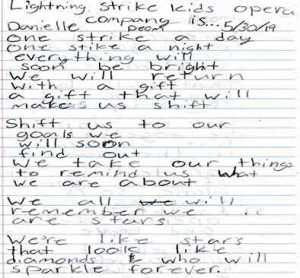 Lightning Strike kids opera
company is... 5/30/19
Danielle poem
one strike a day
one stike a night
everything will
soon be bright
we will return
with a gift
a gift that will
makes us shift
Shift us to our
goals we
will soon
find out
we take our things
to remind us what
we are about
We all will
remember we
are stars
We're like stars
that look like
diamonds & who will
sparkle forever.